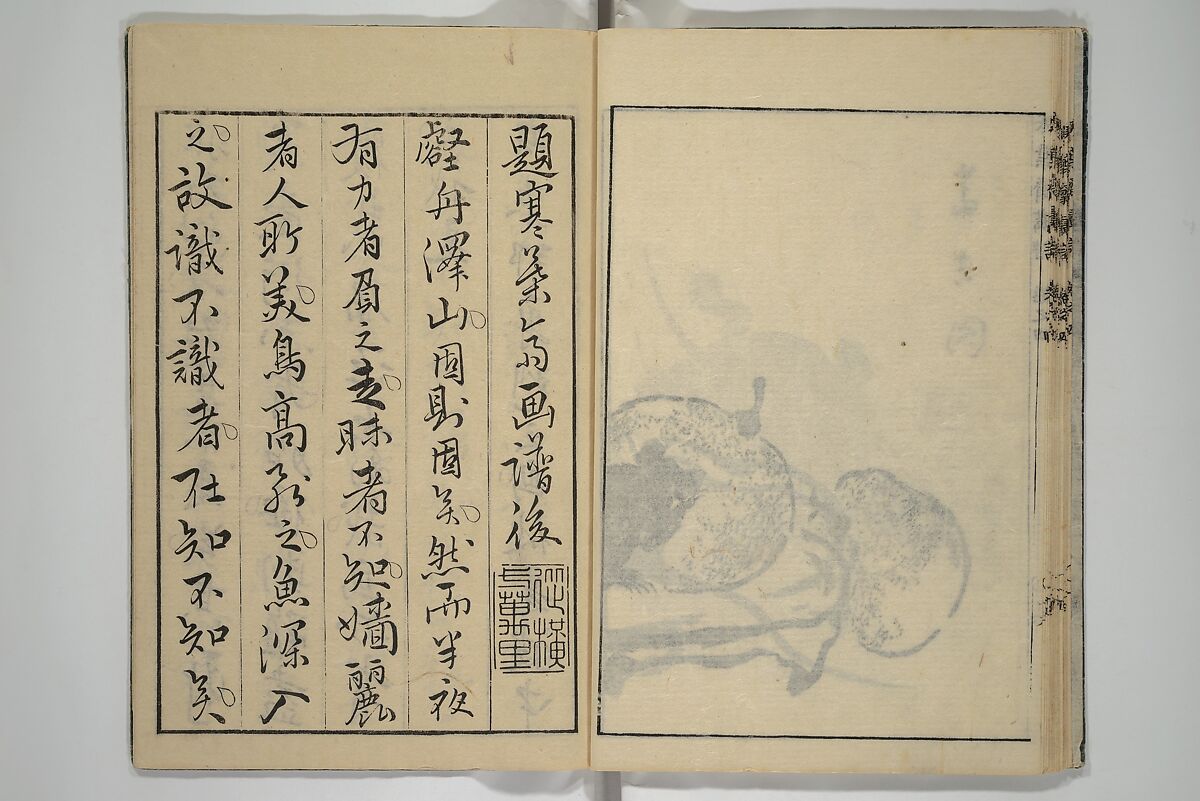 題寒葉斎画譜後
壑舟澤山。固則固矣。然而半夜
有力者負之走。昧者不知。嬙麗
者人所美。鳥高飛之。魚深入
之。故識不識者。在知不知矣。